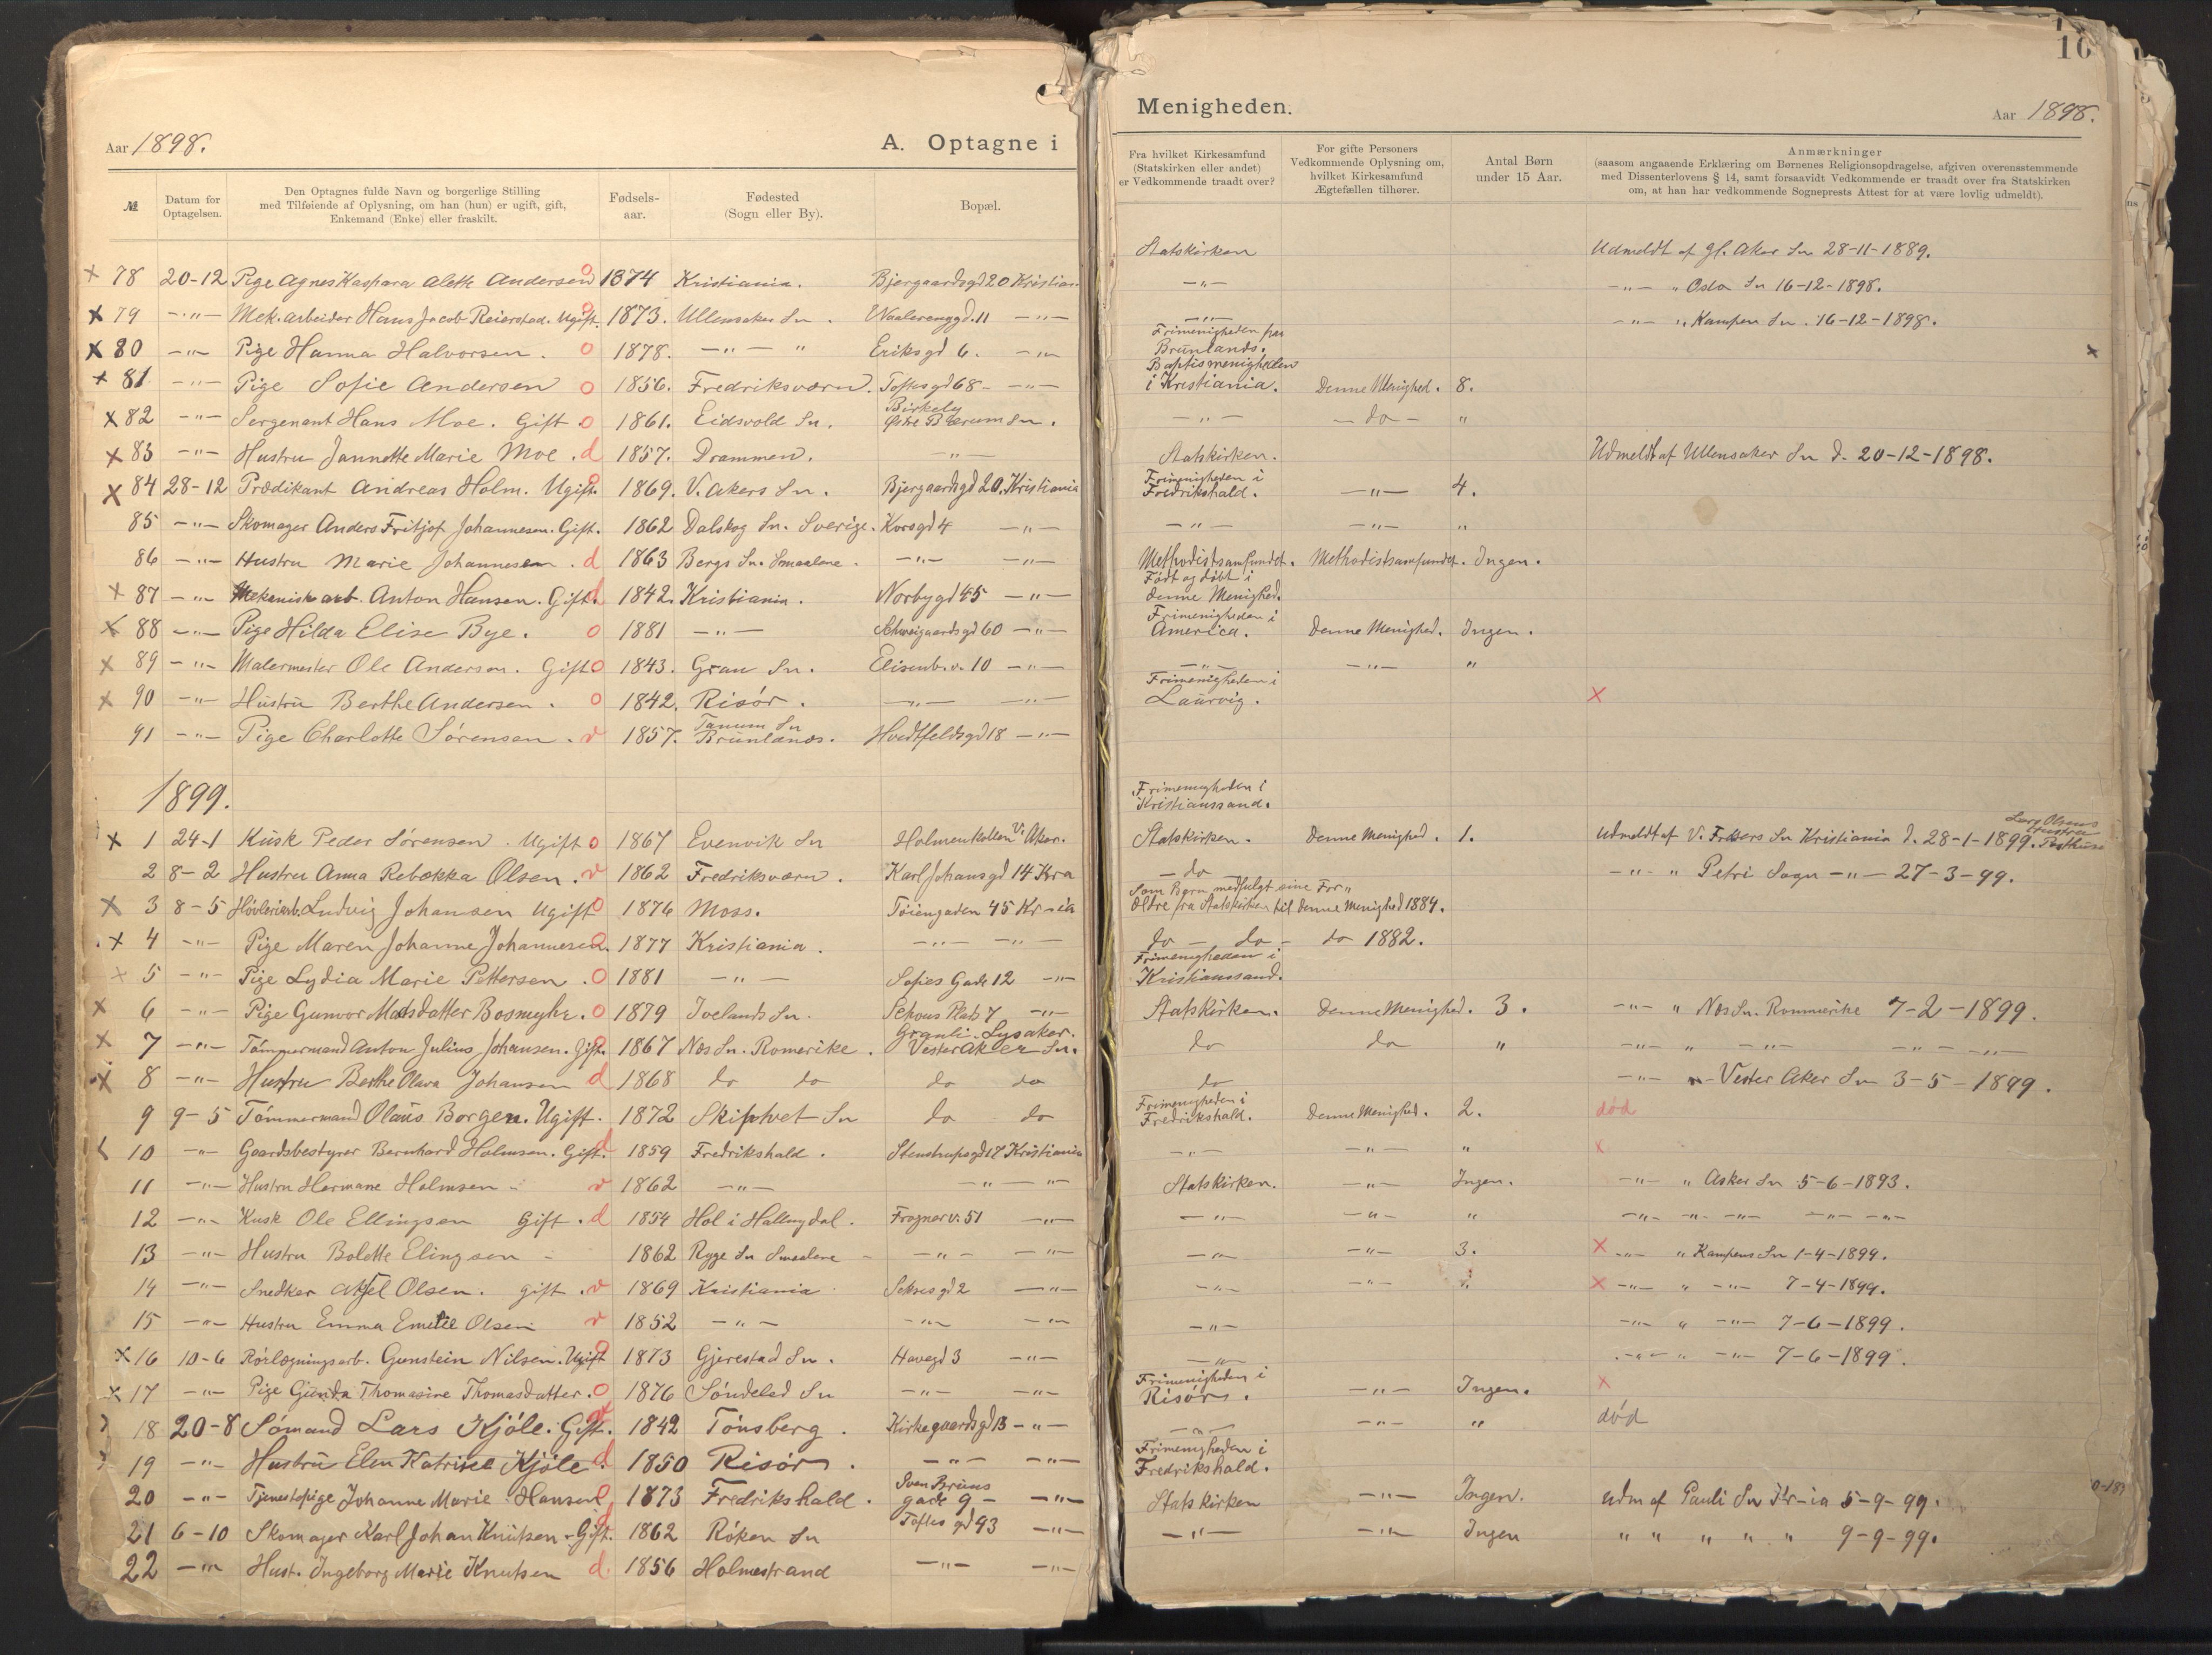 Aar 1898.
A. Optagne i
№
Datum for Optagelsen.
Den Optagnes fulde Navn og borgerlige Stilling
med Tilføiende af Oplysning, om han (hun) er ugift, gift,
Enkemand (Enke) eller fraskilt.
Fødsels-
aar.
Fødested
(Sogn eller By).
Bopæl.
x 78 20-12 Pige Agnes Kaspara Alette Andersen o 1874 Kristiania. Bjergaardsgd 20 Kristian
x 79 -"- Mek. arbeider Hans Jacob Reierstad. Ugift. o 1873. Ullensaker Sn. Waalerenggd. 11 -"-
x 80 -"- Pige Hanna Halvorsen. o 1878. -"- " Eriksgd 6. -"-
x 81 -"- Pige Sofie Andersen o 1856. Fredriksværn. Toftesgd 68 -"-
x 82 -"- Sergenant Hans Moe. Gift. o 1861. Eidsvold Sn. Birkely Østre Bærum Sn.
x 83 -"- Hustru Jannette Marie Moe. d 1857. Drammen. -"-
x 84 28-12 Prædikant Andreas Holm. Ugift. 1869. V. Akers Sn. Bjergaardsgd 20. Kristiania
85 -"- Skomager Anders Fritjof Johannesen. Gift. 1862 Dalskog Sn. Sverige. Korsgd 4 -"-
86 -"- Hustru Marie Johannesen. d 1863 Bergs Sn. Smaalene. -"- -"-
x 87 -"- Mekanisk arb. Anton Hansen. Gift. d 1842. Kristiania. Norbygd 45 -"-
x 88 -"- Pige Hilda Elise Bye. o 1881 -"- Schweigaardsgd 60 -"-
x 89 -"- Malermester Ole Andersen. Gift o 1843. Gran Sn. Elisenb.v. 10 -"-
x 90 -"- Hustru Berthe Andersen. o 1842. Risør. -"- -"-
91 -"- Pige Charlotte Sørensen. v 1857. Tanum Sn Brunlanes. Hvidtfeldsgd 18 -"-
1899.
x 1 24-1 Kusk Peder Sørensen. Ugift o 1867 Evenvik Sn Holmenkollen V. Aker.
2 8-2 Hustru Anna Rebekka Olsen. v 1862 Fredriksværn. Karl Johansgd 14 Kra
x 3 8-5 Høvleriarb. Ludvig Johansen Ugift o 1876 Moss. Tøiengaden 45 Kr-ia
x 4 -"- Pige Maren Johanne Johannesen. 1877 Kristiania. -"- -"-
x 5 -"- Pige Lydia Marie Pettersen. o 1881 -"- Sofies Gade 12 -"-
x 6 -"- Pige Gunvor Madsdatter Bosmyhr. o 1879 Ivelands Sn. Schous Plads 7 -"-
x 7 -"- Tømmermand Anton Julius Johansen. Gift. 1867 Nes Sn. Romerike. Granli. Lysaker. Vester Aker Sn.
x 8 -"- Hustru Berthe Olava Johansen d 1868 do do do do
9 9-5 Tømmermand Olaus Borgen. Ugift. 1872 Skiptvet Sn do do
10 -"- Gaardsbestyrer Bernhard Holmsen. Gift. d 1859 Fredrikshald. Stenstrupsgd 17 Kristiania
11 -"- Hustru Hermane Holmsen v 1862 -"- -"- -"-
12 -"- Kusk Ole Ellingsen Gift. d 1854 Hol i Hallingdal. Frognerv. 51 -"-
13 -"- Hustru Bolette Elingsen 1862 Rygge Sn Smaalene -"- -"-
14 -"- Snedker Aksel Olsen. gift. v 1869 Kristiania Schousgd 2 -"-
15 -"- Hustru Emma Emelie Olsen v 1852 -"- -"- -"-
x 16 10-6 Rørlægningsarb. Gunstein Nilsen. Ugift 1873 Gjerestad Sn. Havegd 3 -"-
x 17 -"- Pige Gunda Thomasine Thomasdatter. o 1876 Søndeled Sn -"- -"-
18 20-8 Sømand Lars Kjøle. Gift. 1842 Tønsberg. Kirkegaardsgd 13 -"-
19 -"- Hustru Elen Katrine Kjøle. d 1850 Risør. -"- -"-
20 -"- Tjenestepige Johanne Marie Hansen 1873 Fredrikshald. Sven Bruns gade 9 -"-
21 6-10 Skomager Karl Johan Knutsen Gift. 1862 Røken Sn Toftes gd 93 -"-
22 -"- Hust. Ingeborg Marie Knutsen d. 1856 Holmestrand -"- -"-
10
Menigheden.
Aar 1898.
Fra hvilket Kirkesamfund
(Statskirken eller andet)
er Vedkommende traadt over?
For gifte Personers
Vedkommende Oplysning om,
hvilket Kirkesamfund
Ægtefællen tilhører.
Antal Børn
under 15 Aar.
Anmærkninger
(saasom angaaende Erklæring om Børnenes Religionsopdragelse, afgiven overensstemmende
med Dissenterlovens § 14, samt forsaavidt Vedkommende er traadt over fra Statskirken
om, at han har vedkommende Sogneprests Attest for at være lovlig udmeldt).
Statskirken Udmeldt af gl. Aker Sn 28-11-1889.
-"- -"- " Oslo Sn 16-12-1898.
-"- -"- " Kampen Sn. 16-12-1898.
Frimenigheden fra
Brunlands. x
Baptistmenigheden
i Kristiania. Denne Menighed. 8.
-"- -do- "
Statskirken. Udmeldt af Ullensaker Sn d. 20-12-1898.
Frimenigheden i
Fredrikshald. -"- 4.
-"- -"- "
Methodistsamfundet. Methodistsamfundet. Ingen.
Født og døbt i
denne Menighed.
Frimenigheden i
America. Denne Menighed. Ingen.
-"- -"- "
Frimenigheden i
Laurvig. x
Frimenigheden i
Kristianssand.
Statskirken. Denne Menighed. 1. Udmeldt af V. Frelsers Sn Kristiania d. 28-1-1899.
Lars Olsens
Hustru
- do -"- " Petri Sogn -"- 27-3-99.
Som Barn medfulgt sine For"
ældre fra Statskirken til denne Menighed 1884.
do - do - do 1882.
Frimenigheden i
Kristianssand.
Statskirken. Denne Menighed. 3. -"- " Nes Sn. Rommerike 7-2-1899.
do do " -"- " -"- -"- -"-
do -"- " Vester Aker Sn 3-5-1899.
Frimenigheden i
Fredrikshald. Denne Menighed. 2. død
-"- -"- " x
Statskirken. -"- Ingen. -"- " Asker Sn 5-6-1893.
-"- -"- " -"- -"- -"- -"- -"-
-"- -"- 3. x -"- " Kampens Sn 1-4-1899.
-"- -"- " x -"- " -"- 7-4-1899.
-"- -"- " -"- 7-6-1899.
-"- -"- " -"- 7-6-1899.
Frimenigheden i
Risør. -"- Ingen. x
-"- -"- " død
Frimenigheden i
Fredrikshald.
Statskirken -"- Ingen. Udm af Pauli Sn Kr-ia 5-9-99.
-"- -"- Ingen " " " " " 9-9-99.